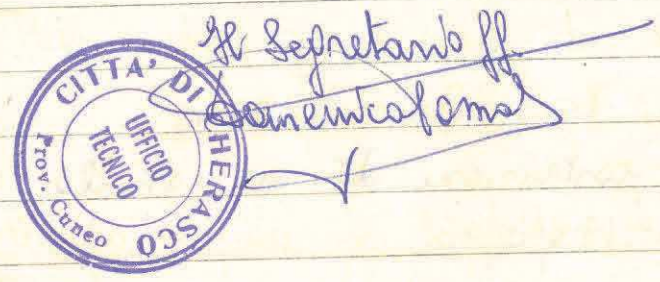 Il Segretario ff.
CITTA' DI CHERASCO
UFFICIO
TECNICO
Prov. Cuneo